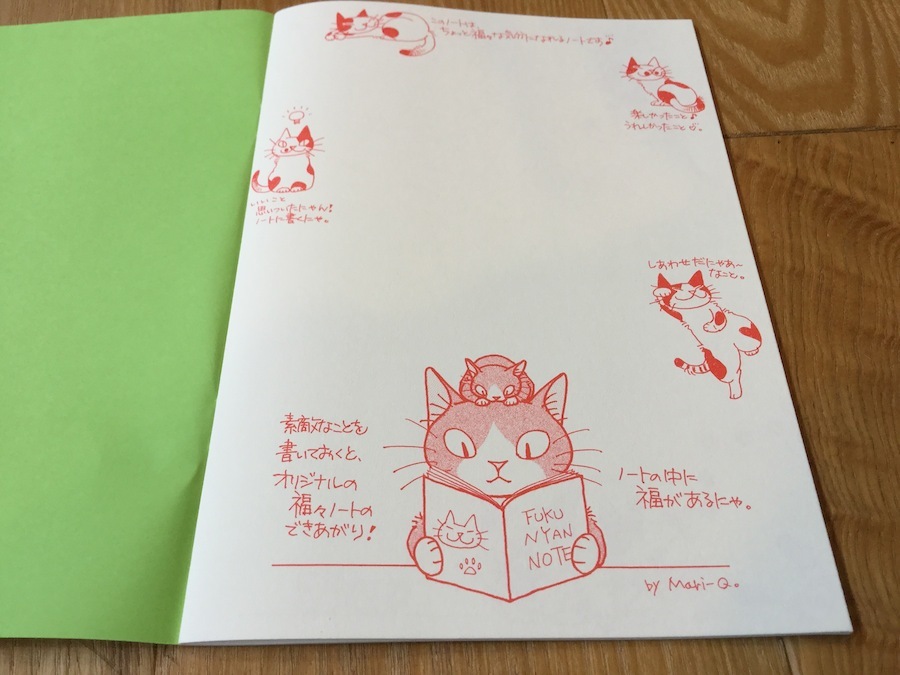 このノートは、
ちょっと福々な気分になれるノートです♪
楽しかったこと♪
うれしかったこと♪。
いいこと
思いついたにゃん!
ノートに書くにゃ。
しあわせだにゃあ〜
なこと。
素敵なことを
書いておくと、
オリジナルの
福々ノートの
できあがり!
ノートの中に
福があるにゃ。
FUKU
NYAN
NOTE
by Mari-Q。